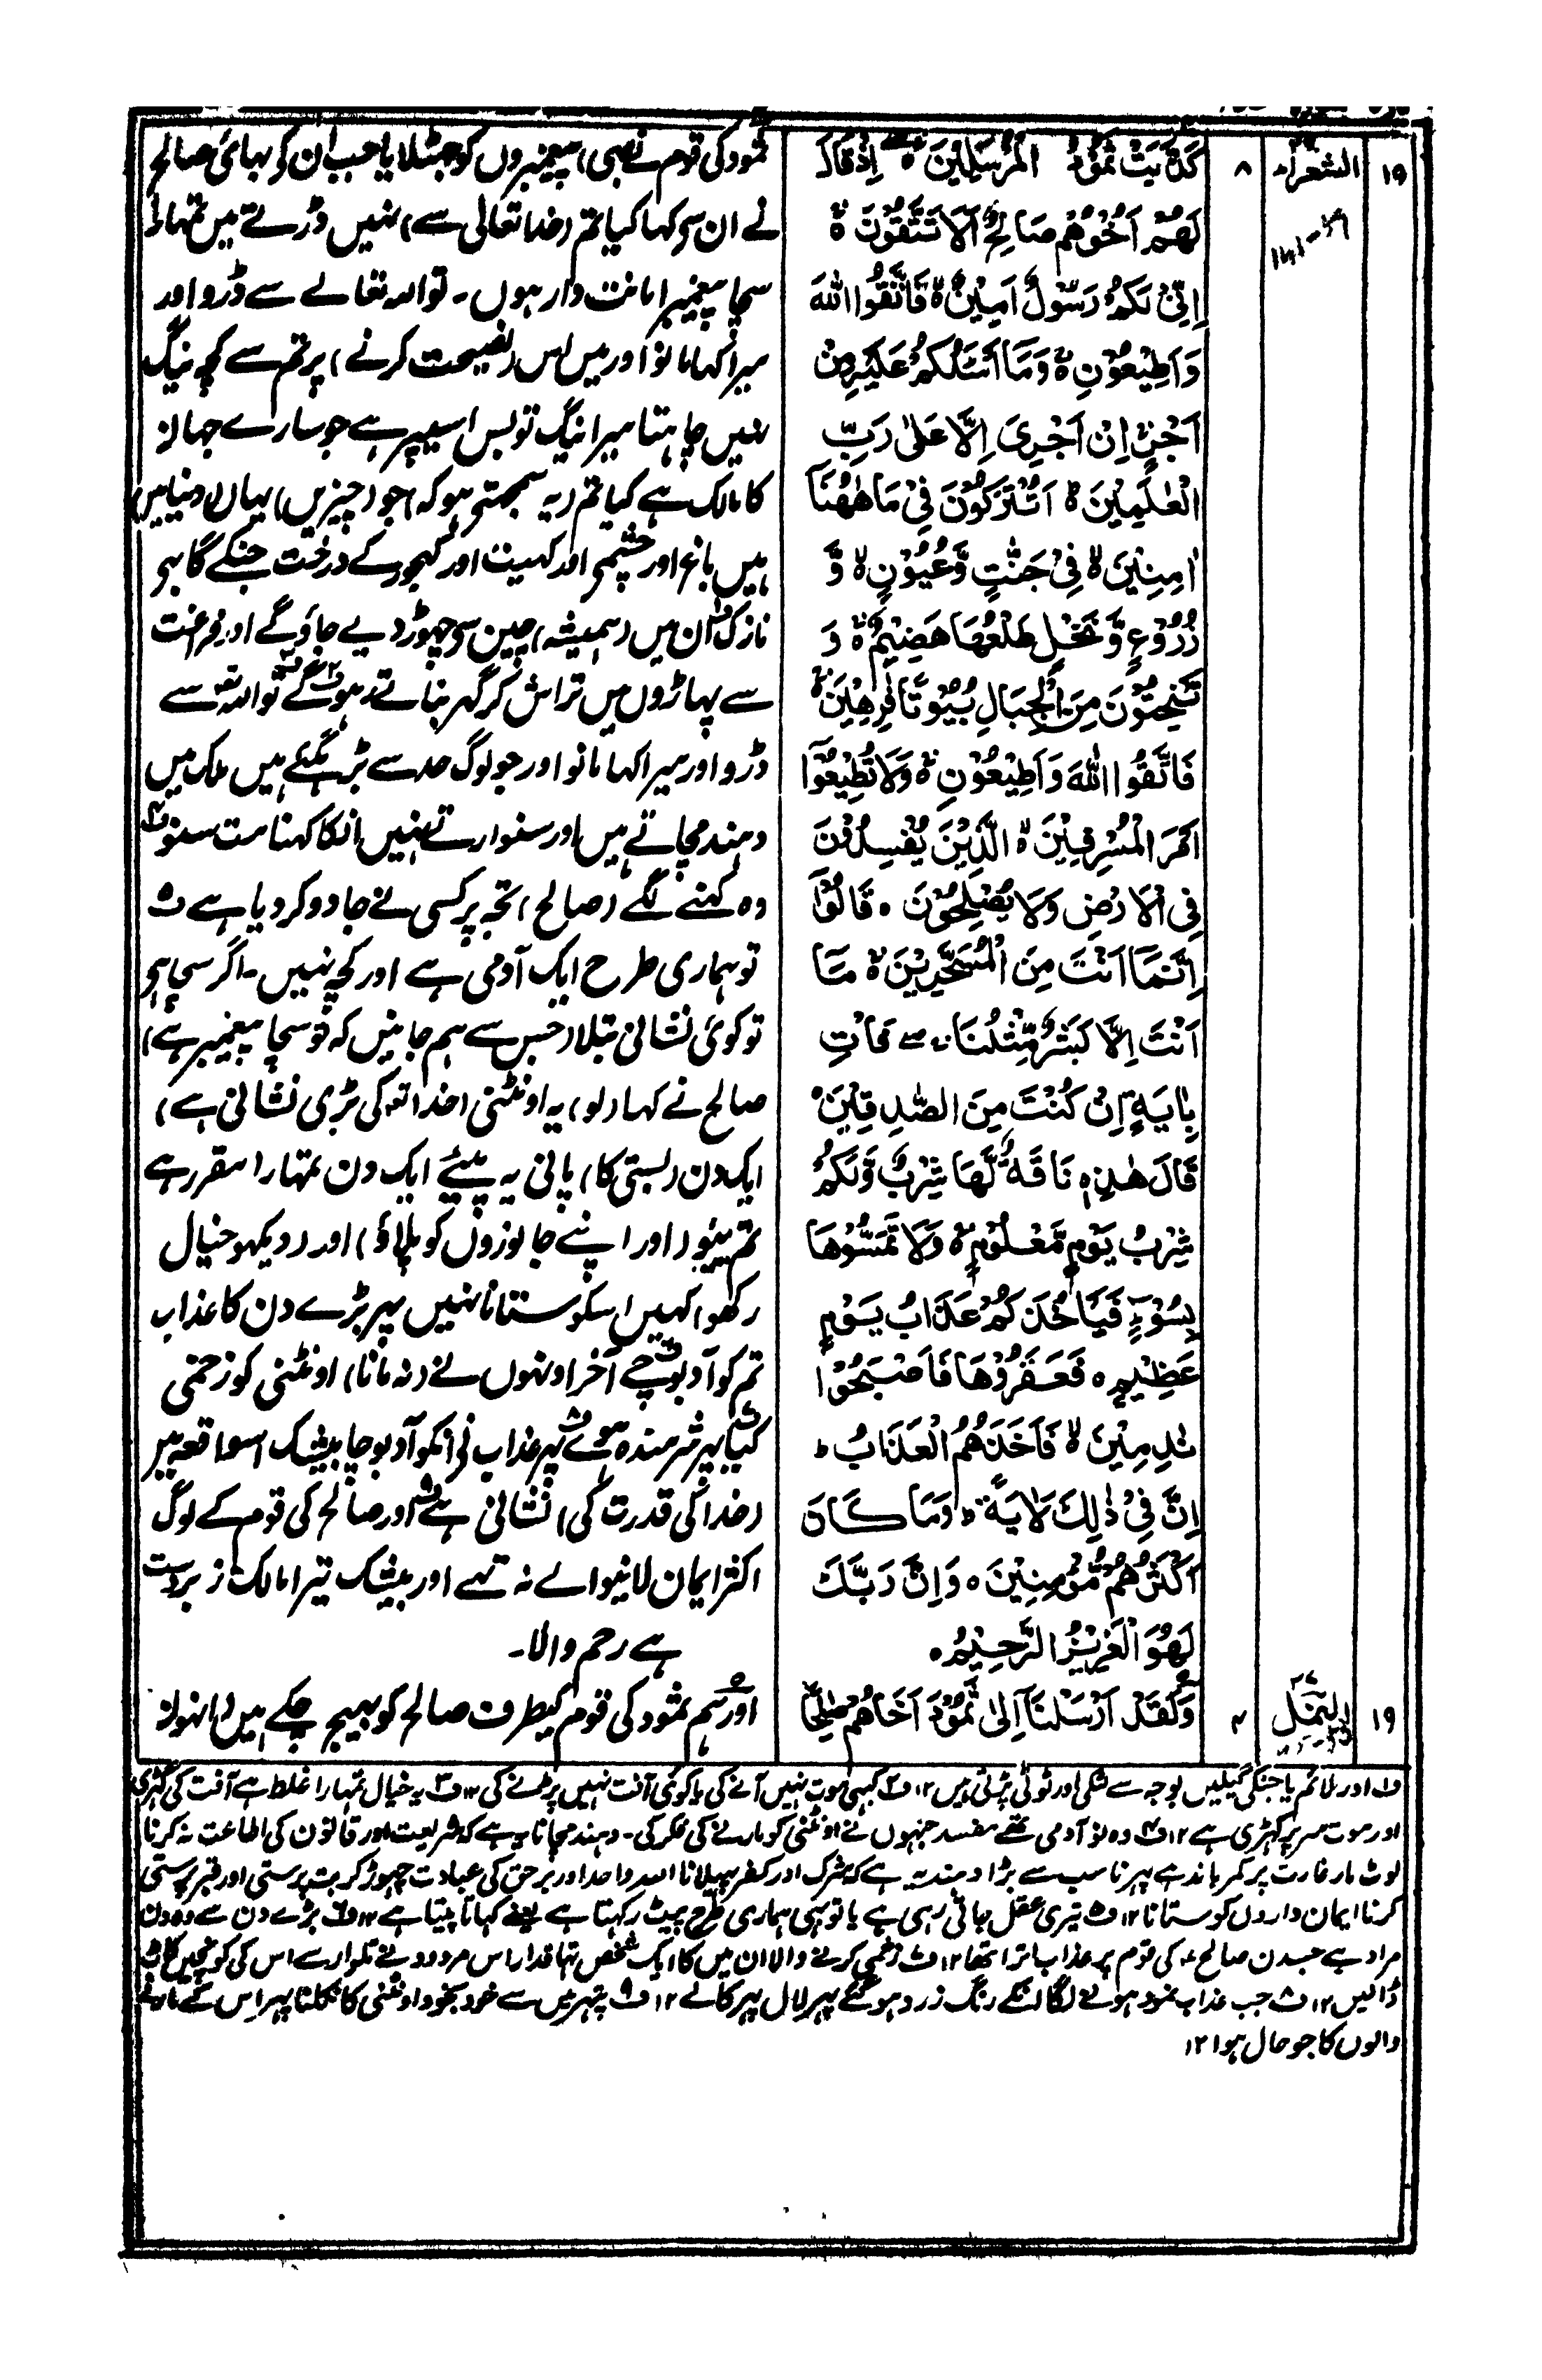 ۱۹ الشعراء ۸
كَذَّبَتْ ثَمُوْدُ الْمُرْسَلِيْنَ ۚ اِذْ قَالَ
لَهُمْ اَخُوْهُمْ صٰلِحٌ اَلَا تَتَّقُوْنَ ۚ
اِنِّيْ لَكُمْ رَسُوْلٌ اَمِيْنٌ ۙ فَاتَّقُوا اللّٰهَ
وَاَطِيْعُوْنِ ۚ وَمَا اَسْـَٔلُكُمْ عَلَيْهِ مِنْ
اَجْرٍ اِنْ اَجْرِيَ اِلَّا عَلٰى رَبِّ
الْعٰلَمِيْنَ ؕ اَتُتْرَكُوْنَ فِيْ مَا هٰهُنَا
اٰمِنِيْنَ ۙ فِيْ جَنّٰتٍ وَّعُيُوْنٍ ۙ وَّ
زُرُوْعٍ وَّنَخْلٍ طَلْعُهَا هَضِيْمٌ ۚ وَ
تَنْحِتُوْنَ مِنَ الْجِبَالِ بُيُوْتًا فٰرِهِيْنَ ۚ
فَاتَّقُوا اللّٰهَ وَاَطِيْعُوْنِ ۚ وَلَا تُطِيْعُوْٓا
اَمْرَ الْمُسْرِفِيْنَ ۙ الَّذِيْنَ يُفْسِدُوْنَ
فِي الْاَرْضِ وَلَا يُصْلِحُوْنَ ۰ قَالُوْٓا
اِنَّمَا اَنْتَ مِنَ الْمُسَحَّرِيْنَ ۚ مَا
اَنْتَ اِلَّا بَشَرٌ مِّثْلُنَا ۖ فَاْتِ
بِاٰيَةٍ اِنْ كُنْتَ مِنَ الصّٰدِقِيْنَ ۰
قَالَ هٰذِهٖ نَاقَةٌ لَّهَا شِرْبٌ وَّلَكُمْ
شِرْبُ يَوْمٍ مَّعْلُوْمٍ ۚ وَلَا تَمَسُّوْهَا
بِسُوْٓءٍ فَيَاْخُذَكُمْ عَذَابُ يَوْمٍ
عَظِيْمٍ ۰ فَعَقَرُوْهَا فَاَصْبَحُوْا
نٰدِمِيْنَ ۙ فَاَخَذَهُمُ الْعَذَابُ ؕ
اِنَّ فِيْ ذٰلِكَ لَاٰيَةً ؕ وَمَا كَانَ
اَكْثَرُهُمْ مُّؤْمِنِيْنَ ۰ وَاِنَّ رَبَّكَ
لَهُوَ الْعَزِيْزُ الرَّحِيْمُ ۰
۱۹ النمل ۴
وَلَقَدْ اَرْسَلْنَآ اِلٰى ثَمُوْدَ اَخَاهُمْ صٰلِحًا
ثمود کی قوم نے بھی) پیغمبروں کو جھٹلایا جب ان کو بہائی صالح
نے ان سو کہا کیا تم (خدا تعالی سے) نہیں ڈرتے میں تمہارا
سچا پیغمبر امانت دار ہوں۔ تو اللہ تعالے سے ڈرو اور
میرا کہا مانو اور میں اس (نصیحت کرنے) پر تم سے کچہ نیگ
نہیں چاہتا میرا نیگ تو بس اسیپر ہے جو سارے جہان
کا مالک ہے کیا تم (یہ سمجہتے ہو کہ) جو (چیزیں) یہاں (دنیا میں)
ہیں باغ اور چشمے اور کہیت اور کہجور کے درخت جنکے گابہے
نازک ان میں (ہمیشہ) چین سو چہوڑ دیے جاؤگے اور فراغت
سے پہاڑوں میں تراش کر گہر بناتے رہوگے تو اللہ سے
ڈرو اور میرا کہا مانو اور جو لوگ حد سے بڑہ گئے ہیں ملک میں
دہند مچاتے ہیں اور سنوارتے نہیں انکا کہنا مت سنو
وہ کہنے لگے (صالح) تجہ پر کسی نے جادو کر دیا ہے
تو ہماری طرح ایک آدمی ہے اور کچہ نہیں۔ اگر سچا ہے
تو کوئی نشانی بتلا (جس سے ہم جانیں کہ تو سچا پیغمبر ہے)
صالح نے کہا (لو) یہ اونٹنی (خدا کی بڑی نشانی ہے)
ایک دن (بستی کا) پانی یہ پیئے ایک دن تمہارا مقرر ہے
تم پیو (اور اپنے جانوروں کو پلاؤ) اور (دیکہو خیال
رکہو) کہیں اسکو ستانا نہیں پہر بڑے دن کا عذاب
تم کو آدبوچے آخر اونہوں نے (نہ مانا) اونٹنی کو زخمی
کیا پہر شرمندہ ہوئے پہر عذاب نے انکو آدبوچا بیشک اس واقعہ میں
(خدا کی قدرت کی) نشانی ہے اور صالح کی قوم کے لوگ
اکثر ایمان لانیوالے نہ تہے اور بیشک تیرا مالک زبردست
ہے رحم والا۔
اور ہم ثمود کی قوم کیطرف صالح کو بہیج چکے ہیں (انہوں
ف۱ اور ملائم یا جنکی گیلیں بوجہ سے لٹکی اور ٹوٹی پڑتی ہیں ۱۲ ف۲ کبہی موت نہیں آنے کی یا کوئی آفت نہیں پڑنے کی ۱۲ ف۳ یہ خیال تمہارا غلط ہے آفت کی گہڑی
اور موت سر پر کہڑی ہے ۱۲ ف۴ وہ نو آدمی تہے مفسد جنہوں نے اونٹنی کو مارنے کی فکر کی۔ دہند مچانا یہ ہے کہ شریعت اور قانون کی اطاعت نہ کرنا
لوٹ مار غارت پر کمر باندہے پہرنا سب سے بڑا دہند یہ ہے کہ شرک اور کفر پہیلانا اللہ واحد اور برحق کی عبادت چہوڑ کر بت پرستی اور قبر پرستی
کرنا ایمان داروں کو ستانا ۱۲ ف۵ تیری عقل جاتی رہی ہے یا تو بہی ہماری طرح پیٹ رکہتا ہے یعنے کہاتا پیتا ہے ۱۲ ف۶ بڑے دن سے وہ دن
مراد ہے جسدن صالح ع کی قوم پر عذاب اترا تہا ۱۲ ف۷ زخمی کرنے والا ان میں کا ایک شخص تہا قدار اس مردود نے تلوار سے اس کی کونچیں کاٹ
ڈالیں ۱۲ ف۸ جب عذاب نمود ہونے لگا انکے رنگ زرد ہوگئے پہر لال پہر کالے ۱۲ ف۹ پتہر میں سے خود بخود اونٹنی کا نکلنا پہر اس کے مارنے
والوں کا جو حال ہوا ۱۲